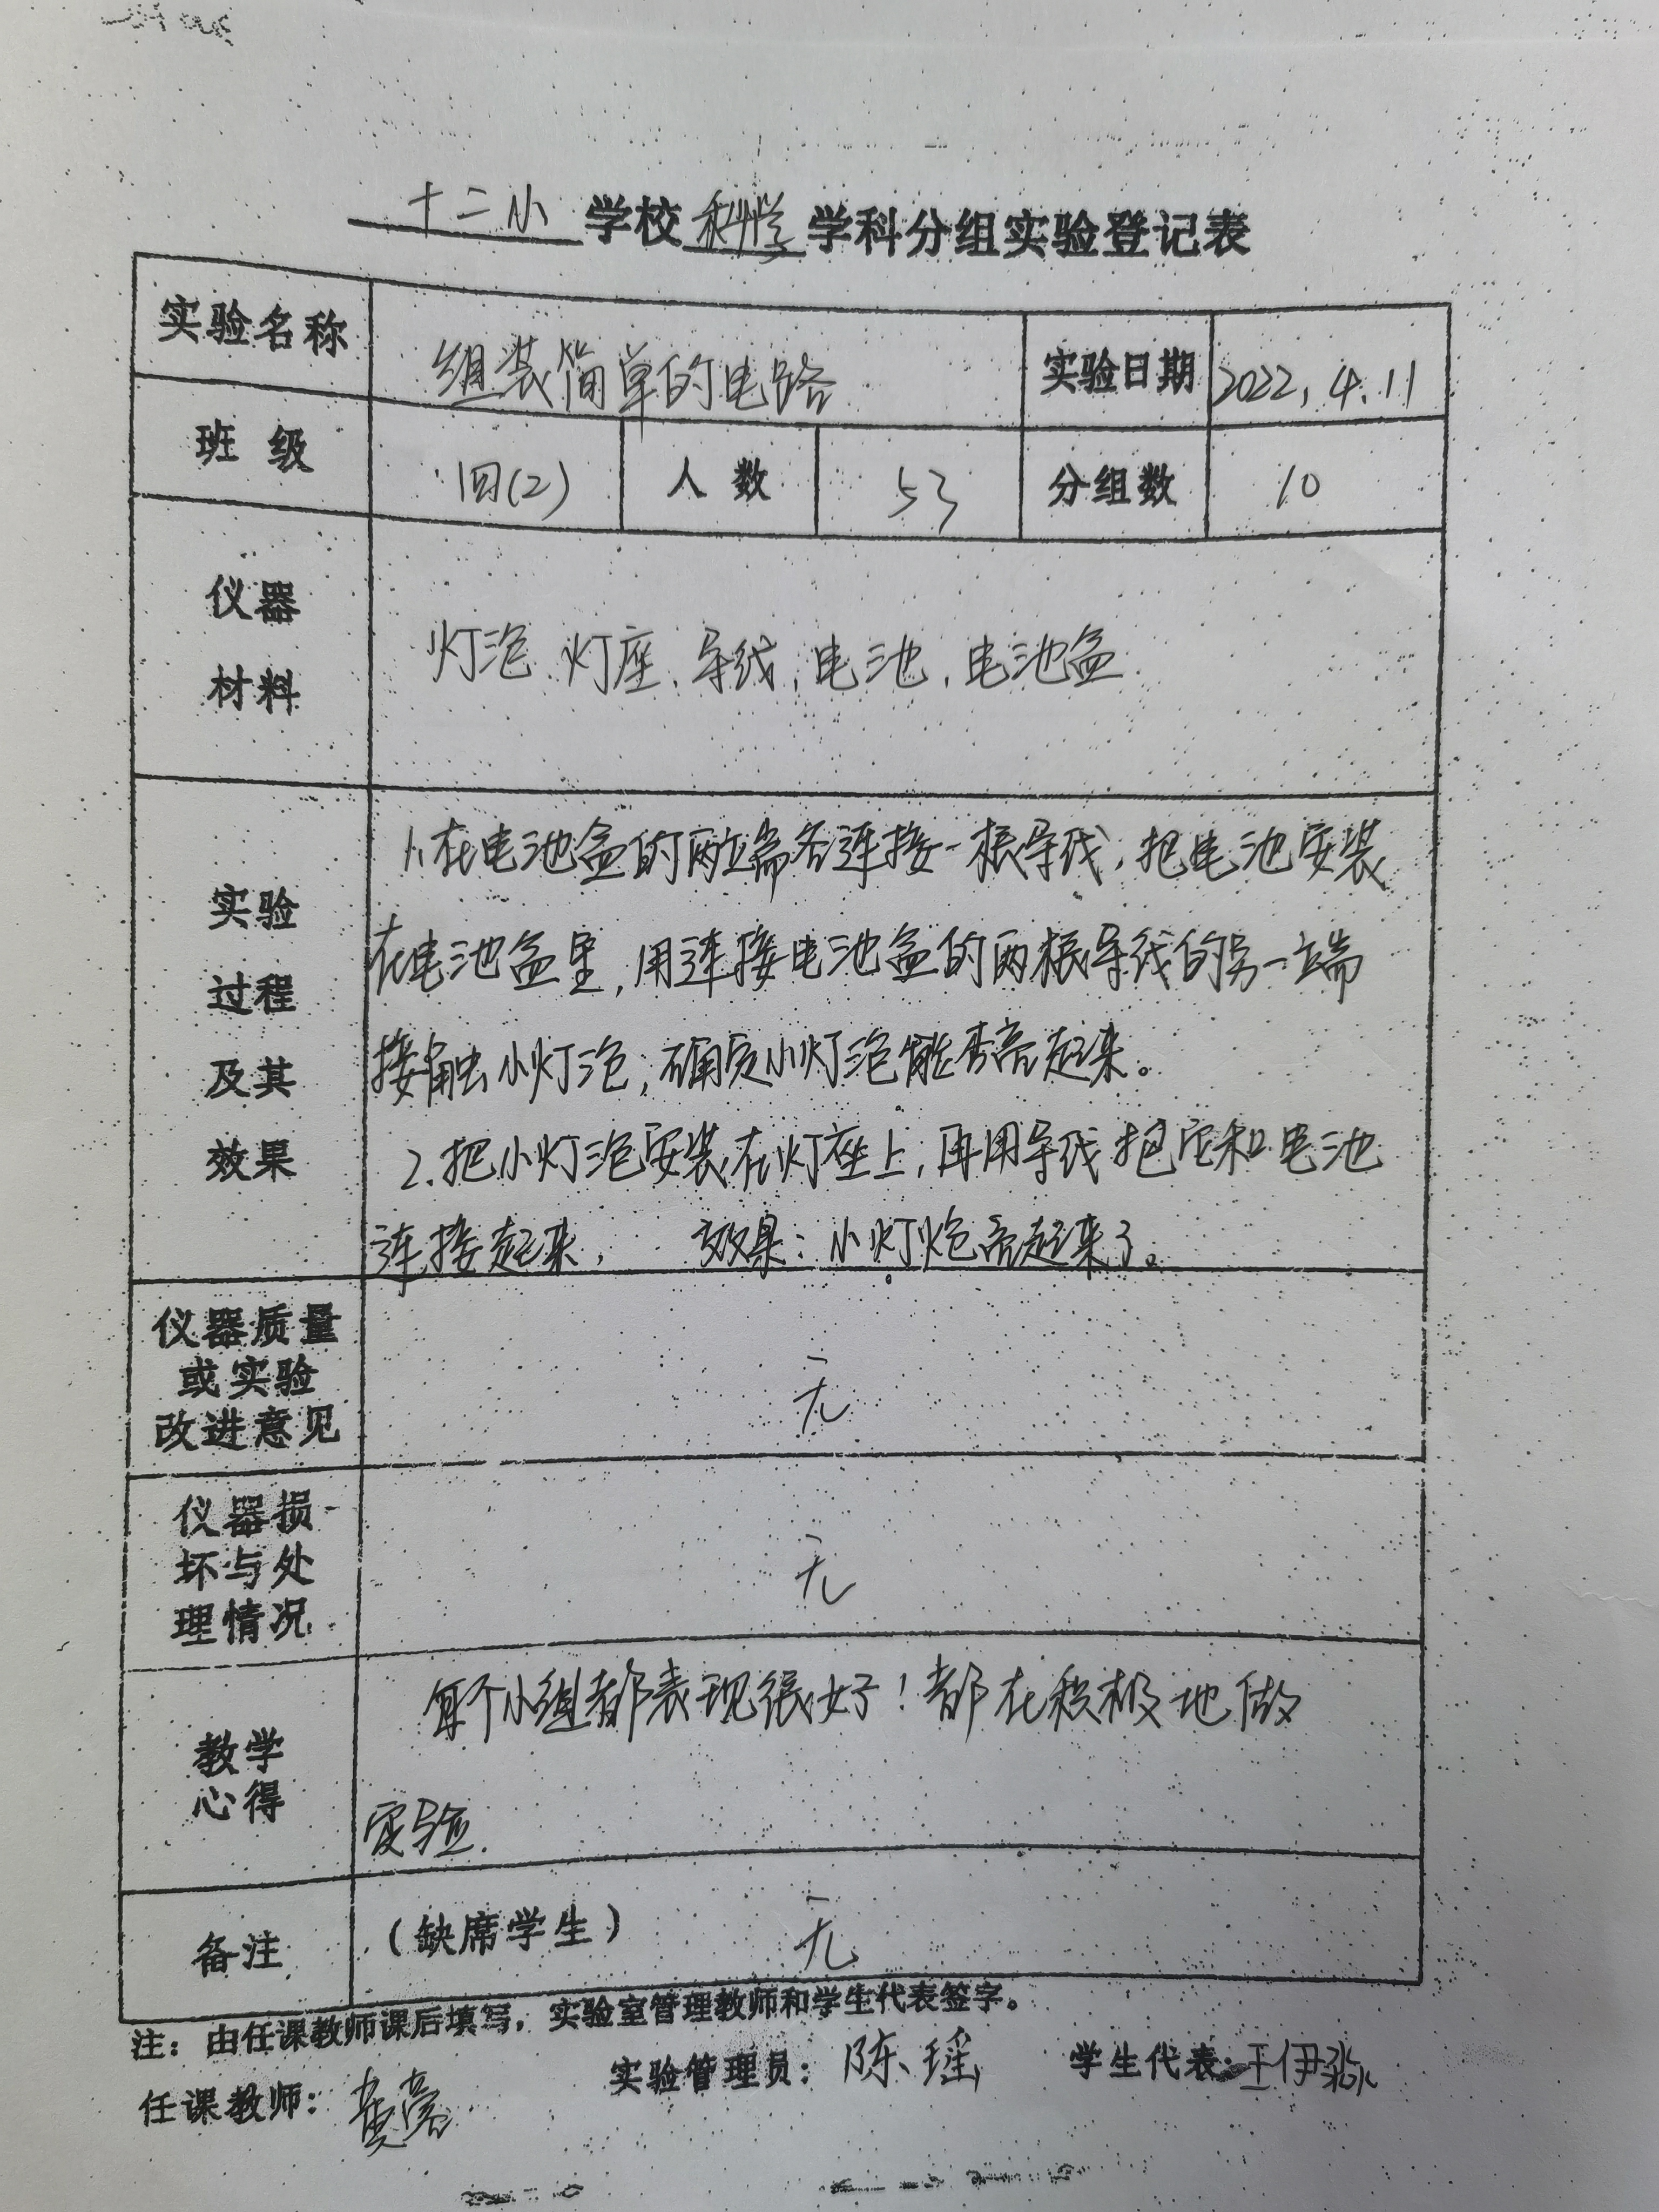 十二小 学校 科学 学科分组实验登记表
实验名称 组装简单的电路 实验日期 2022.4.11
班级 四(2) 人数 53 分组数 10
仪器
材料
灯泡、灯座、导线、电池、电池盒
实验
过程
及其
效果
1.在电池盒的两端各连接一根导线,把电池安装
在电池盒里,用连接电池盒的两根导线的另一端
接触小灯泡,确定小灯泡能够亮起来。
2.把小灯泡安装在灯座上,再用导线把它和电池
连接起来, 效果:小灯炮亮起来了。
仪器质量
或实验
改进意见
无
仪器损
坏与处
理情况
无
教学
心得
每个小组都表现很好!都在积极地做
实验.
备注 (缺席学生) 无
注:由任课教师课后填写,实验室管理教师和学生代表签字。
任课教师: 实验管理员:陈瑶 学生代表:王伊